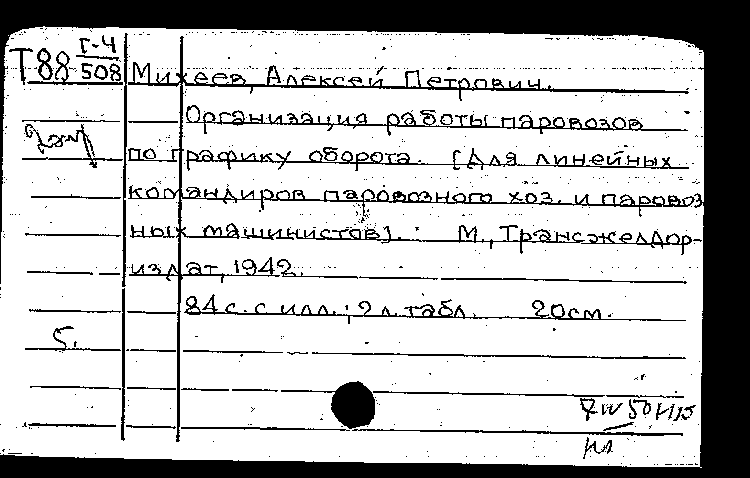 Т88 Г-4
508
Михеев, Алексей Петрович.
Организация работы паровозов
по графику оборота. [Для линейных
командиров паровозного хоз. и паровоз
ных машинистов]. М., Трансжелдор-
издат, 1942.
84 с. с илл.; 2 л. табл. 20см.
5.